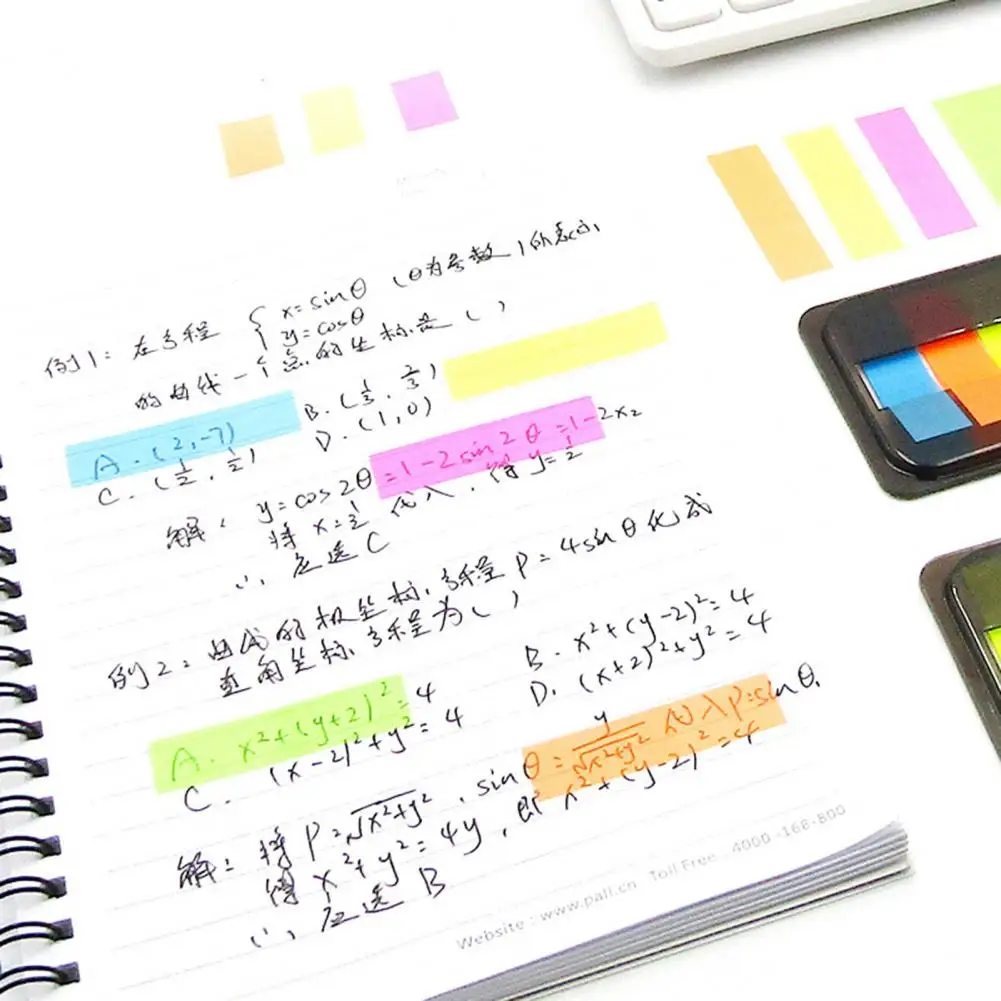 例1：在方程 { x=sinθ (θ为参数)所表示
y=cosθ
的曲线一个点的坐标是( )
A.(2,-7) B.(1/3,2/3)
C.(1/2,1/2) D.(1,0)
解： y=cos2θ=1-2sin2θ=1-2x2
将 x=1/2 代入，得 y=1/2
∴应选C
例2：曲线的极坐标方程 P=4sinθ化成
直角坐标方程为( )
A. x²+(y+2)²=4 B. x²+(y-2)²=4
C. (x-2)²+y²=4 D. (x+2)²+y²=4
解：将 P=√x²+y², sinθ=y/√x²+y² 代入P=sinθ,
得 x²+y²=4y，即 x²+(y-2)²=4
∴应选B
Website：www.pall.cn Toll Free：4000-168-800